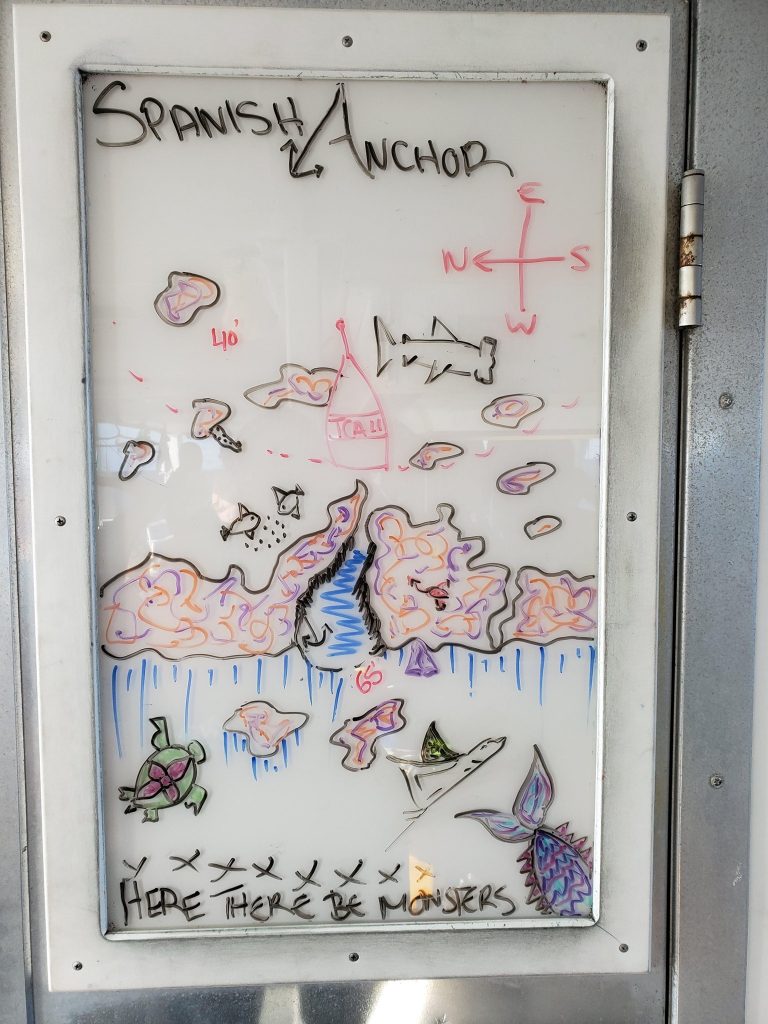 SPANISH ANCHOR
E
N S
W
40'
TCALL
65'
HERE THERE BE MONSTERS